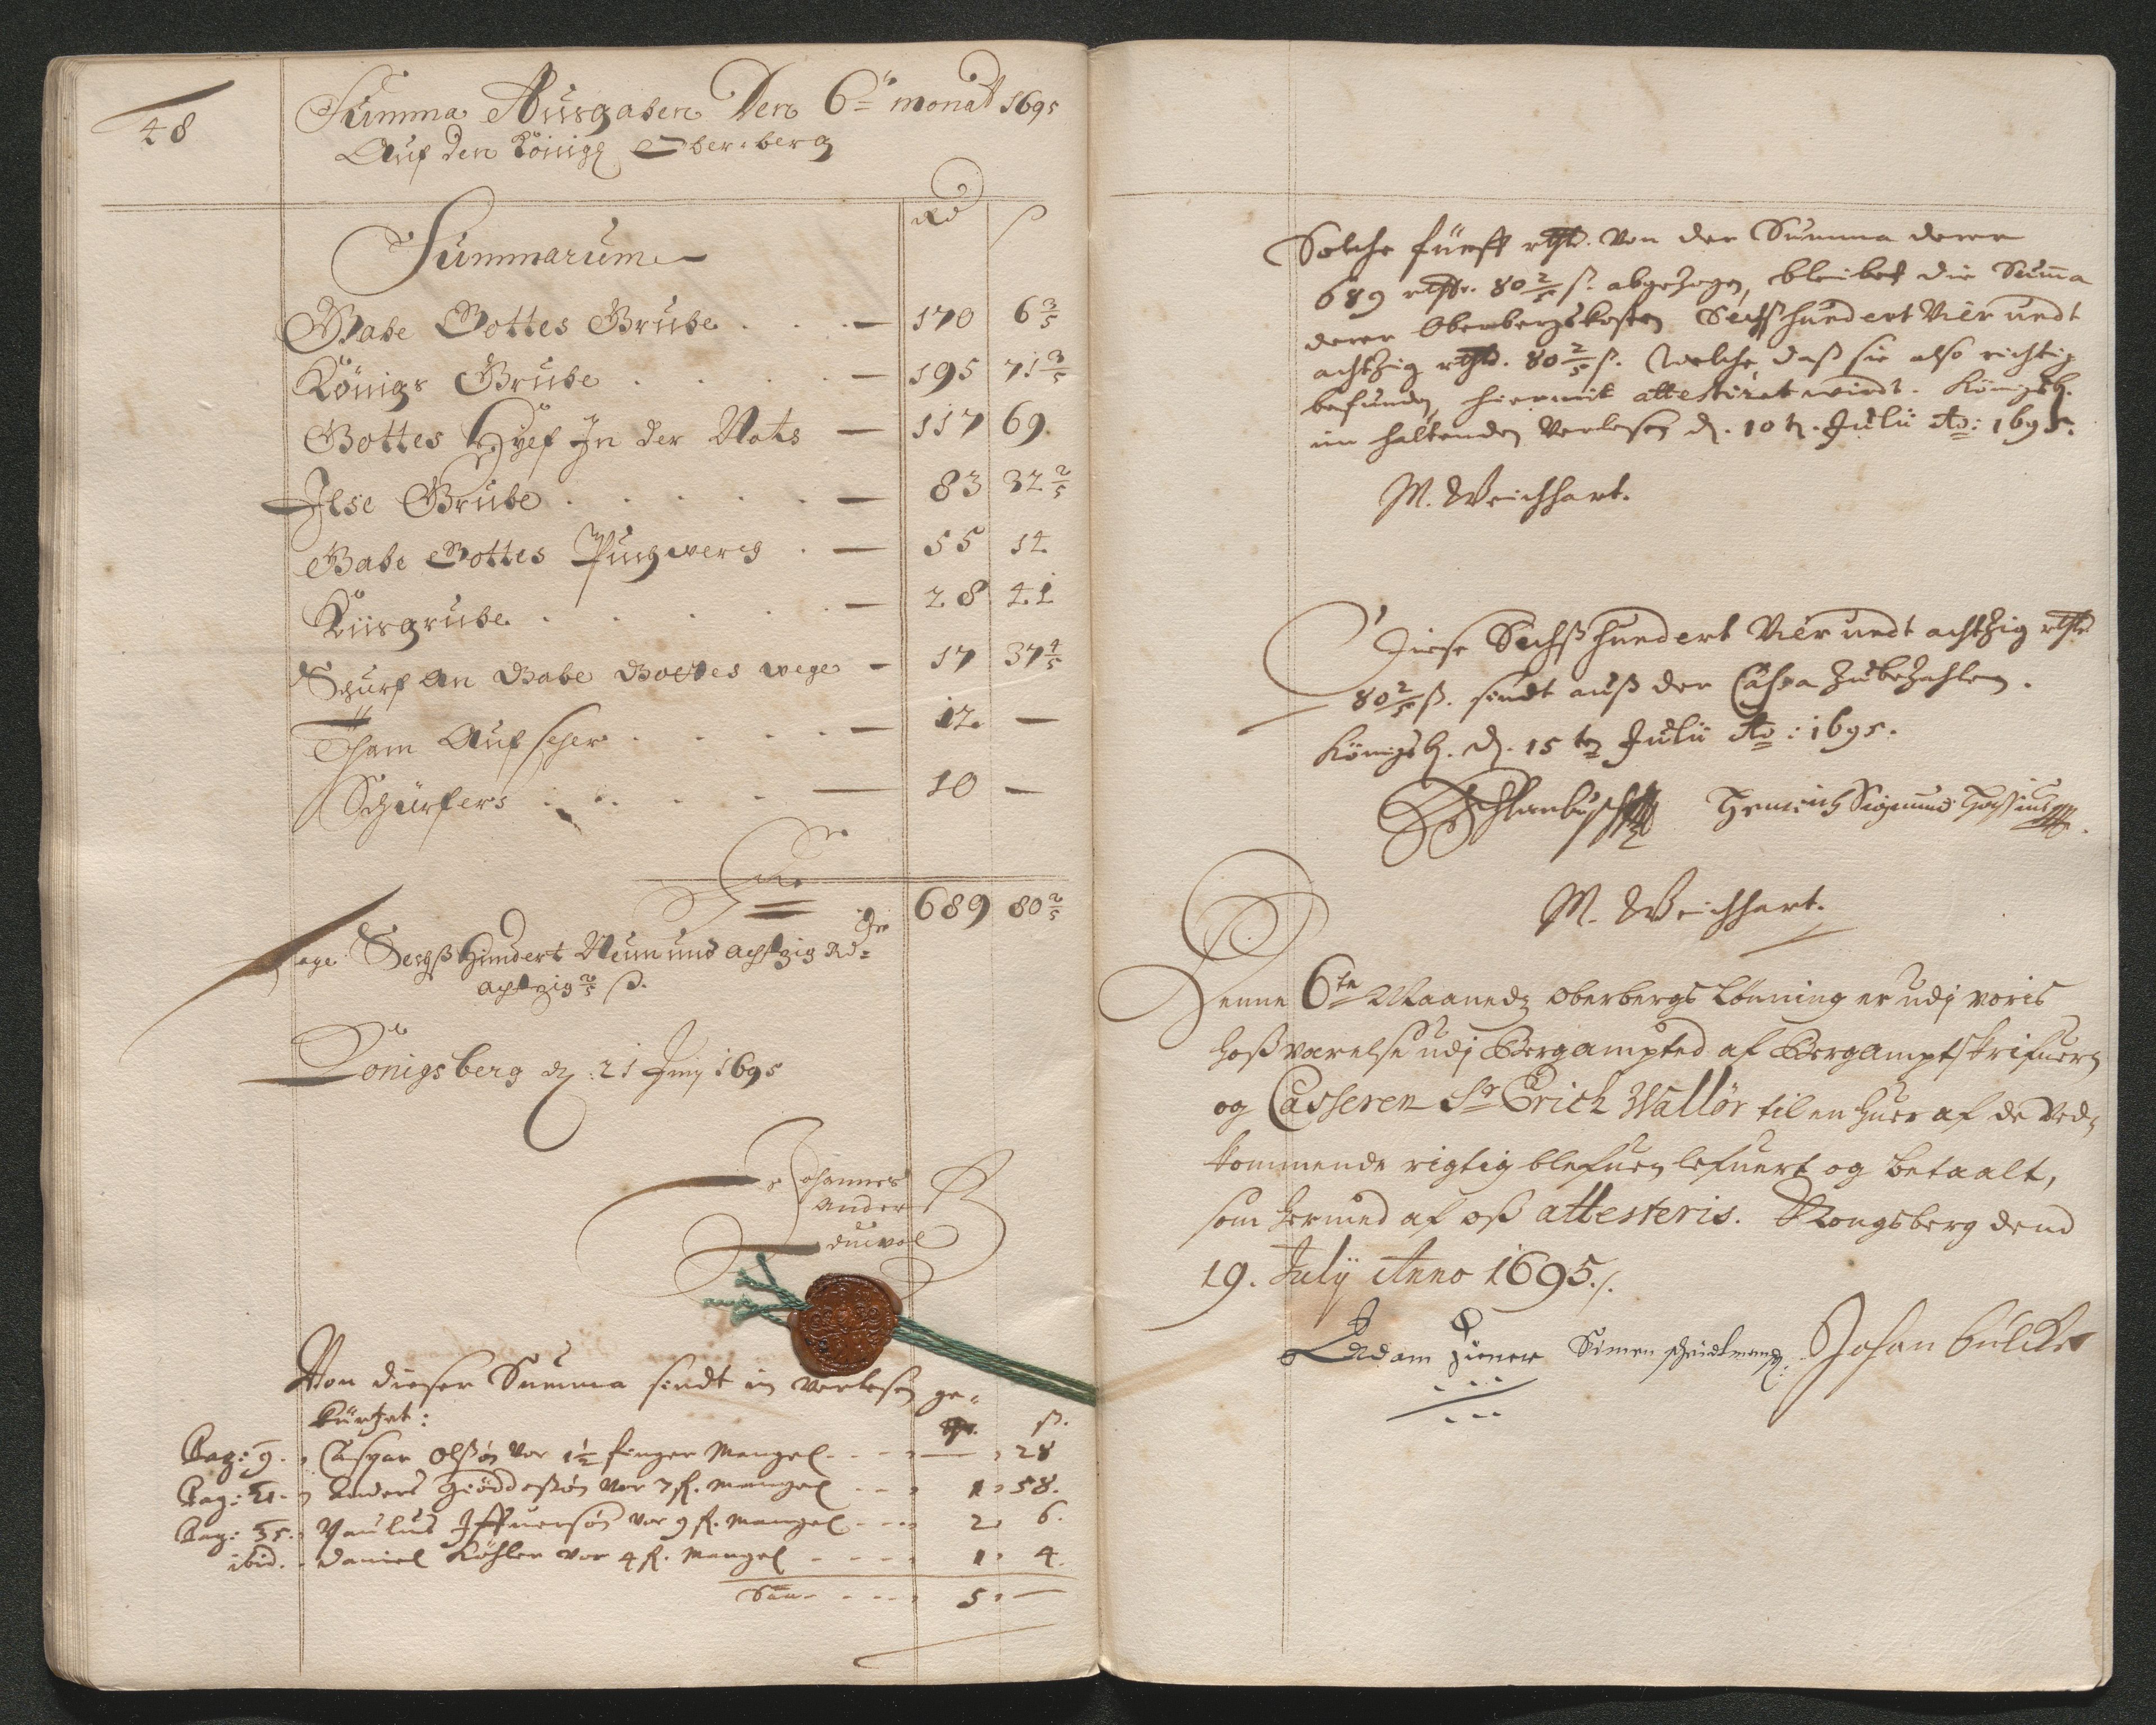 48
Summa Ausgaben Den 6ten monat 1695
Auf den Königl Oberberg
Rd ß
Summarum
Gabe Gottes Grube . . . — 170 6 3/5
Königs Grube . . . . — 195 71 3/5
Gottes Hylf In der Nohs — 117 69.
Ilse Grube . . . . . — 83 32 2/5
Gabe Gottes Puchwerch . — 55 14
Kiisgrube . . . . — 28 41
Schurf An Gabe Gottes wege — 17 37 4/5
Tham Aufseher . . . . — 12. —
Schürfers . . . . — 10 —
Sum̄a 689 80 2/5
Sage Sechß Hundert Neun und Achtzig Rdr
Achtzig 2/5 ß.
Königsberg d: 21 Juny 1695
Johannes
Ander
Von dieser Summa sindt in Verlesen ge-
kürtzet:
ß.
Pag: 9. Caspar Olßøn vor 1½ finger Mangel - - — 28
Pag: 21. Anders Giöddeßøn vor 7 f. mangel - - 1 58.
Pag: 35. Paulus Iffuersøn vor 9 f. Mangel - - - 2 6.
ibid. Daniel Köhler vor 4 f. Mangel - - - - 1. 4.
Sum̄a - - - 5. —
Solche fünff rthl. von der Summa derer
689 rthlr. 80 2/5 ß. abgezogen, bleibet die Sum̄a
derer Oberbergskosten Sechßhundert Vier undt
achtzig rthl. 80 2/5 ß. Welche, daß sie also richtig
befunden, hiermit attestiret wirdt. Königsb.
im haltenden Verlesen d. 10 t. Julii Ao: 1695.
M. Weichhart.
Diese Sechßhundert Vier undt achtzig rthlr
80 2/5 ß. sindt auß der Cassa zubezahlen.
Königsb. d. 15 ten Julii Ao: 1695.
Schlanbusch Henrich Sigmund Hassius
M. Weichhart.
Denne 6te Maanedz Oberbergs Lønning er udj voris
hoßværelse udj Bergampted af Bergamptskrifueren
og Casseren Sr Erich Wallør til en huer af de ved-
kommende rigtig blefuen lefuert og betaalt,
som hermed af oß attesteris. Kongsberg dend
19. Julij Anno 1695./.
Adam Ziener Simen Johan Bülche